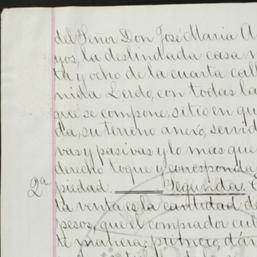 del Señor Don José Maria A
yos, la deslindada casa n
ta y ocho de la cuarta call
nida Lerdo, con todas la
que se compone, sitio en qu
da, su terreno anexo, servid
vas y pasivas y lo mas que
derecho toque y corresponda
2ª piedad. Segunda.
la venta es la cantidad d
pesos, que el comprador cu
te manera: